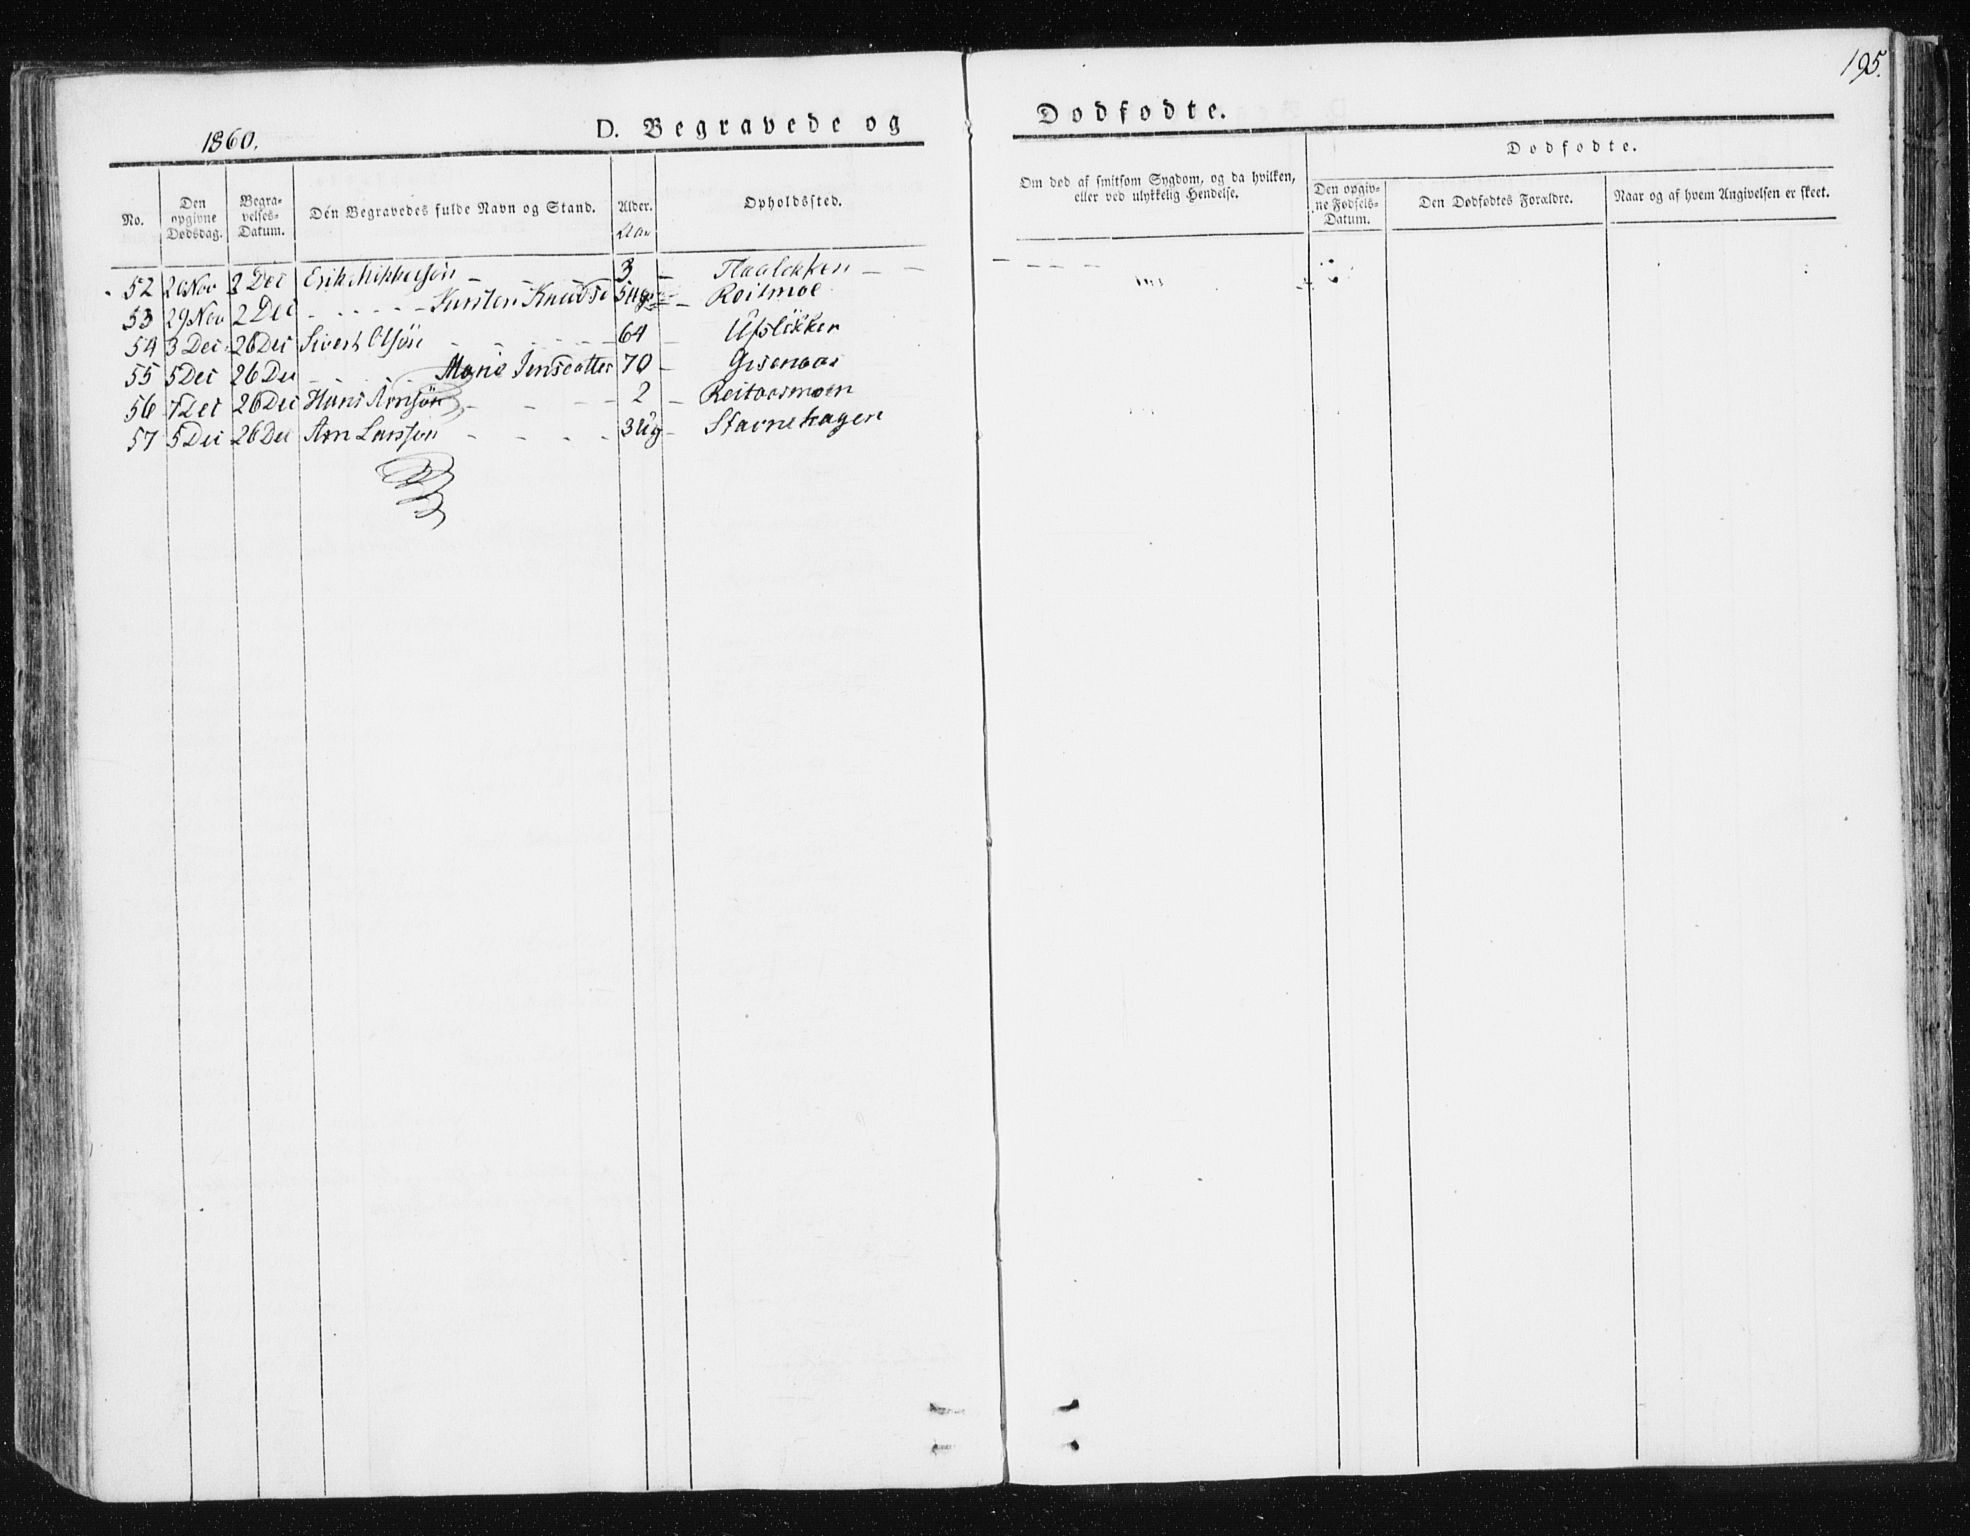 195.
1860.
D. Begravede og Dødfødte.
No.
Den opgivne Dødsdag.
Begravelses-Datum.
Den Begravedes fulde Navn og Stand.
Alder.
Aar
Opholdssted.
Om død af smitsom Sygdom, og da hvilken, eller ved ulykkelig Hendelse.
Dødfødte.
Den opgivne Fødsels-Datum.
Den Dødfødtes Forældre.
Naar og af hvem Angivelsen er skeet.
52 Nov 2 Dec Erik Mikkelsön - - 3 - - -
53 29 Nov 2 Dec - - - - - Kirsten Knudsd - Roitmoe
54 3 Dec 26 Dec Sivert Olsön - - - - 64 - Ufsløkken
55 5 Dec 26 Dec - - Jensdatter 70 - Gisenaas
56 7 Dec 26 Dec Hans Arnsön - - - 2 - Reitaasmoen
57 5 Dec 26 Dec Arn Larsson - - - - 3 Ug - Stavnehagen